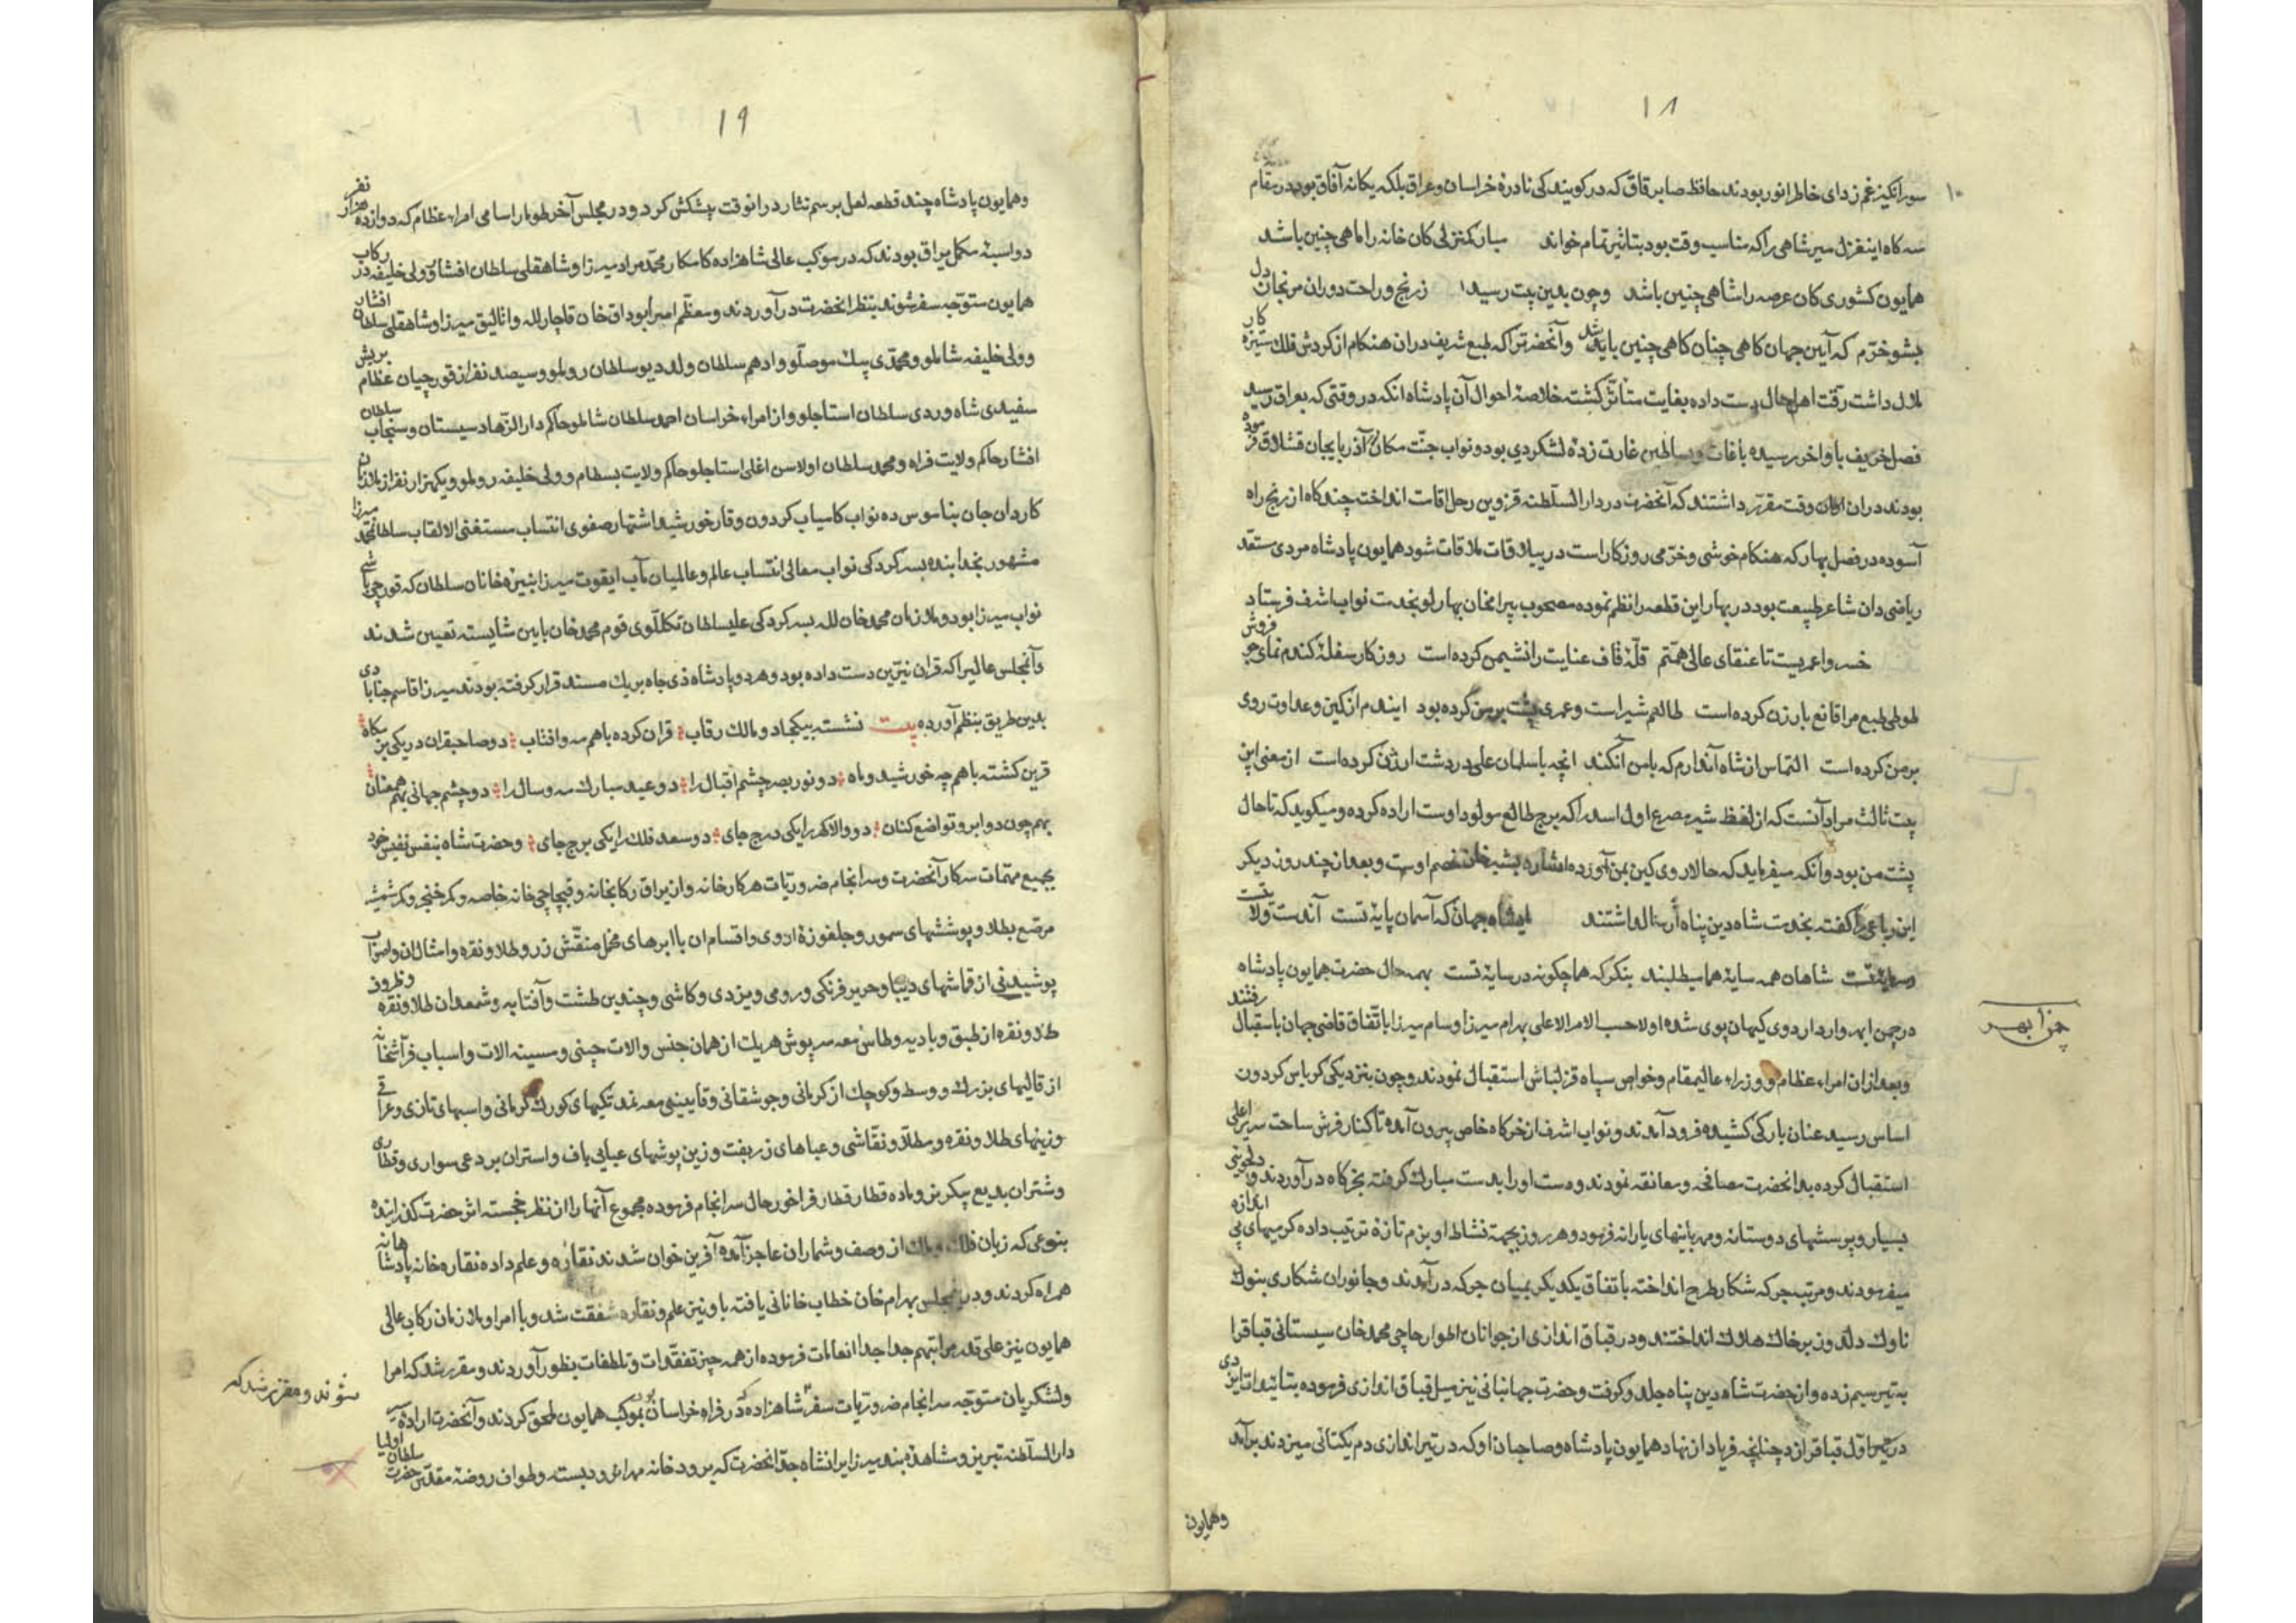 ۱۸
سورانکیز غم زدای خاطر انور بودند حافظ صابر قاق که در کویندکی نادرۀ خراسان و عراق بلکه یکانه آفاق بود در مقام
سه کاه این غزل میر شاهی را که مناسب وقت بود بتاثیر تمام خواند مبارک منزلی کان خانه را ماهی چنین باشد
همایون کشوری کان عرصه را شاهی چنین باشد و چون بدین بیت رسید ز رنج و راحت دوران مرنجان دل
مشو خرم که آیین جهان کاهی چنان کاهی چنین باشد و آنحضرت را که طبع شریف دران هنکام از کردش فلک ستیزه کار
ملال داشت رقت اهل حال دست داده بغایت متاثر کشت خلاصۀ احوال آن پادشاه انکه در وقتی که بعراق رسید
فصل خریف باواخر رسیده باغات و بساطین غارت زدۀ لشکر دی بود و نواب جنت مکان در آذربایجان قشلاق فرموده
بودند دران وقت مقرر داشتند که آنحضرت در دار السلطنه قزوین رحل اقامت انداخت چند کاه از رنج راه
آسوده در فصل بهار که هنکام خوشی و خرمی روزکار است در ییلاقات ملاقات شود همایون پادشاه مردی مستعد
ریاضی دان شاعر طبیعت بود در بهار این قطعه را نظم نموده مصحوب بیرامخان بهارلو بخدمت نواب اشرف فرستاد
خسروا عمریست تا عنقای عالی همتم قلۀ قاف عنایت را نشیمن کرده است روزکار سفلۀ کندم نمای جو فروش
طوطی طبع مرا قانع بارزن کرده است طالعم شیر است و عمری پشت بر من کرده بود ایندم از کین و عداوت روی
بر من کرده است التماس از شاه آندارم که با من آنکند انچه با سلمان علی در دشت ارژن کرده است از معنی این
بیت ثالث مراد آنست که از لفظ شیر مصرع اول اسد را که برج طالع مولود اوست اراده کرده و میکوید که تا حال
پشت من بود و انکه میفرماید که حالا روی کین بمن آورده اشاره بشیر خان خصم اوست و بعد از چند روز دیکر
این رباعی را کفته بخدمت شاه دین پناه ارسال داشتند ایشاه جهان که آسمان پایۀ تست
شاهان همه سایۀ هما میطلبند بنکر که هما چکونه در سایۀ تست بهر حال حضرت همایون پادشاه
در چمن ابهر وارد اردوی کیهان پوی شده اولا حسب الامر الاعلی بهرام میرزا و سام میرزا باتفاق قاضی جهان باستقبال رفتند
و بعد ازان امراء عظام و وزراء عالیمقام و خواص سپاه قزلباش استقبال نمودند و چون بنزدیکی کریاس کردون
اساس رسید عنان بارکی کشیده فرود آمدند و نواب اشرف از خرکاه خاص بیرون آمده تا کنار فرش ساحت سریر اعلی
استقبال کرده با انحضرت مصافحه و معانقه نمودند و دست او را بدست مبارک کرفته بخرکاه در آوردند و دلجویئ
بسیار و پرسشهای دوستانه و مهربانیهای یارانه فرمود و هر روز بجهة نشاط او بزم تازۀ ترتیب داده کرمیهای بی اندازه
میفرمودند و مرتبه جرکه شکار طرح انداخته باتفاق یکدیکر بمیان جرکه در آمدند و جانوران شکاری بنوک
ناوک دلدوز بر خاک هلاک انداختند و در قباق اندازی از جوانان اطوار حاجی محمد خان سیستانی قباق را
به تیر سیم زده و از حضرت شاه دین پناه جلدو کرفت و حضرت جهانبانی نیز میل قباق اندازی فرموده بتائیدات ایزدی
در تیر اول قباق را زد چنانچه فریاد از نهاد همایون پادشاه و مصاحبان او که در تیر اندازی دم یکتائی میزدند بر آمد
و همایون
چمن ابهر
۱۹
و همایون پادشاه چند قطعه لعل برسم نثار درانوقت پیشکش کرد و در مجلس آخر طومار اسامی امراء عظام که دوازده هزار نفر
دو اسبۀ مکمل یراق بودند که در موکب عالی شاهزاده کامکار محمد مراد میرزا و شاهقلی سلطان افشار و ولی خلیفه در رکاب
همایون متوجه سفر شوند بنظر انحضرت در آوردند و معظم امیر ابو داق خان قاجار لله و اتالیق میرزا و شاهقلی سلطان افشار
و ولی خلیفه شاملو و محمدی بیک موصلو و ادهم سلطان ولد دیو سلطان روملو و سیصد نفر از قورچیان عظام بریش
سفیدی شاه وردی سلطان استاجلو و از امراء خراسان احمد سلطان شاملو حاکم دار الزهاد سیستان و سنجاب سلطان
افشار حاکم ولایت فراه و محمد سلطان اولاسن اغلی استاجلو حاکم ولایت بسطام و ولی خلیفه روملو و یکهزار نفر از ملازمان
کاردان جان بناموس ده نواب کامیاب کردون وقار خورشید اشتهار صفوی انتساب مستغنی الالقاب سلطانمحمد میرزا
مشهور بخدا بنده بسر کردکی نواب معالی انتساب عالم و عالمیان مآب ایقوت میرزا نبیرۀ خانان سلطان که قورچی باشی
نواب میرزا بود و ملازمان محمد خان لله بسر کردکی علی سلطان تکللوی قوم محمد خان باین شایسته تعیین شدند
و آنجلس عالیرا که قران نیرین دست داده بود و هر دو پادشاه ذی جاه بر یک مسند قرار کرفته بودند میرزا قاسم جنابادی
بدین طریق بنظم آورده بیت نشسته بیکجا دو مالک رقاب قران کرده باهم مه و افتاب دو صاحبقران در یکی بزمکاه
قرین کشته باهم چه خورشید و ماه دو نور بصر چشم اقبال را دو عید مبارک مه و سال را دو چشم جهانی بهم همعنان
بهم چون دو ابرو تواضع کنان دو والا کهر را یکی درج جای دو سعد فلک را یکی برج جای و حضرت شاه بنفس نفیس خود
بجمیع مهمات سرکار آنحضرت و سر انجام ضروریات هر کارخانه و ازیراق رکابخانه و قیچاچی خانه خاصه و کمر خنجر و کمر شمشیر
مرصع بطلا و پوششهای سمور و جلغوزۀ اروی و اقسام ان با ابرهای مخمل منقش زر و طلا و نقره و امثال ان و اثواب
پوشیدنی از قماشهای دیبا و حریر فرنکی و رومی و یزدی و کاشی و چندین طشت و آفتابه و شمعدان طلا و نقره و ظروف
طلا و نقره از طبق و بادیه و طاس معه سرپوش هریک از همان جنس و الات چینی و مسینه الات و اسباب فراشخانه
از قالیهای بزرک و وسط و کوچک از کرمانی و جوشقانی و قاینی معه نمد تکیهای کورک کرمانی و اسبهای تازی و عراقی
و زینهای طلا و نقره و مطلا و نقاشی و عباهای زربفت و زین پوشهای عبایی باف و استران بردعی سواری و قطاری
و شتران بدیع پیکر نر و ماده قطار قطار فراخور حال سر انجام فرموده مجموع آنها را از نظر خجسته اثر حضرت کذرانیده
بنوعی که زبان فلک و ملک از وصف و شمار ان عاجز آمده آفرین خوان شدند نقاره و علم داده نقاره خان پادشاهانه
همراه کردند و در مجلس بهرام خان خطاب خانانی یافته باو نیز علم و نقاره شفقت شد و با امرا و ملازمان رکاب عالی
همایون نیز علی قدر مراتبهم جدا جدا انعامات فرموده از همه چیز تفقدات و تلطفات بظهور آوردند و مقرر شد که امرا
و لشکریان متوجه سر انجام ضروریات سفر شاهزاده در فراه خراسان بموکب همایون ملحق کردند و آنحضرت اراده
دار السلطنه تبریز و مشاهده بند میرزا میرانشاه جد انحضرت که بر رودخانه مهرانرود بسته و طواف روضۀ مقدس حضرت سلطان اولیا
شوند و مقرر شد که